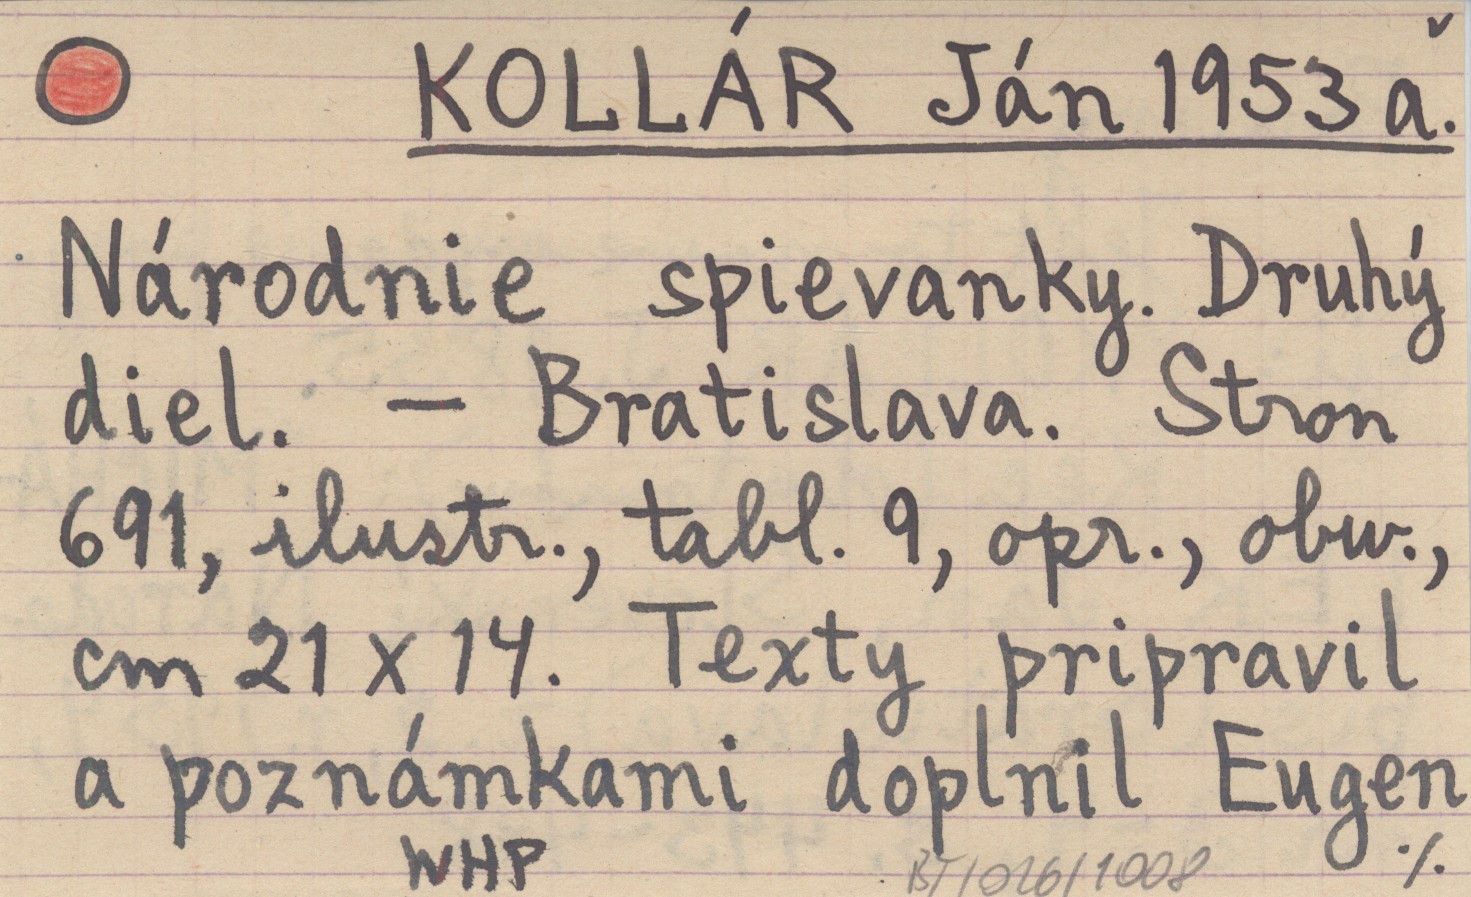 KOLLÁR Ján 1953 ǎ.
Národnie spievanky. Druhý
diel. — Bratislava. Stron
691, ilustr., tabl. 9, opr., obw.,
cm 21 x 14. Texty pripravil
a poznámkami doplnil Eugen
WHP BT/026/1008 ·/.